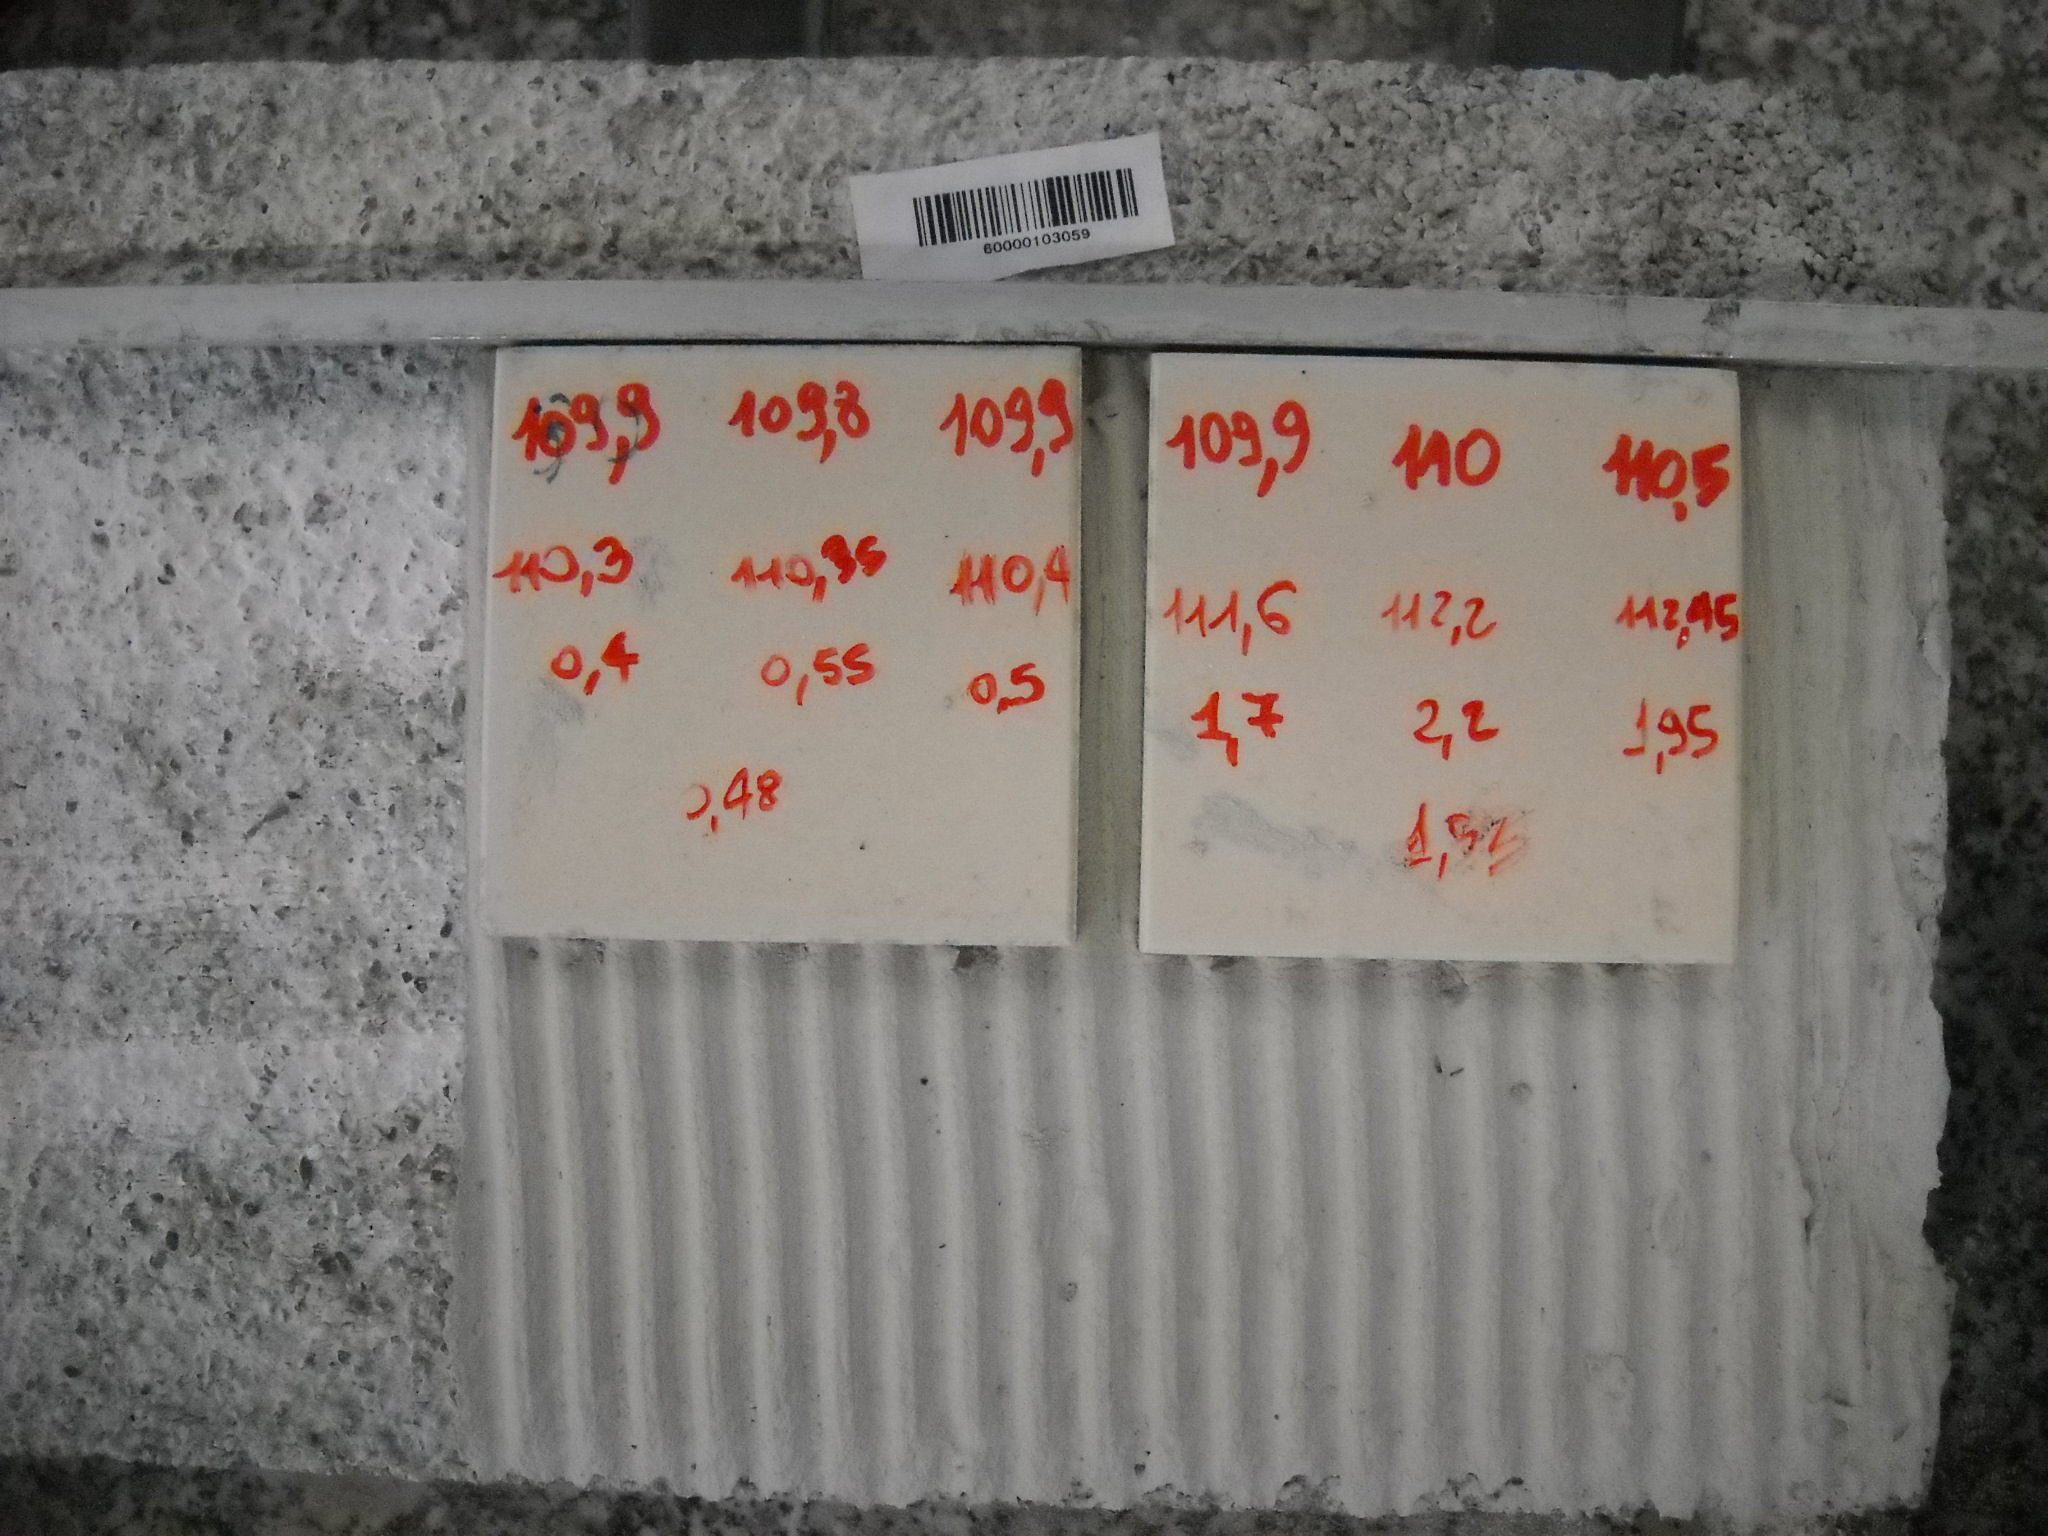 60000103059
109,9 109,8 109,9
110,3 110,35 110,4
0,4 0,55 0,5
0,48
109,9 110 110,5
111,6 112,2 112,45
1,7 2,2 1,95